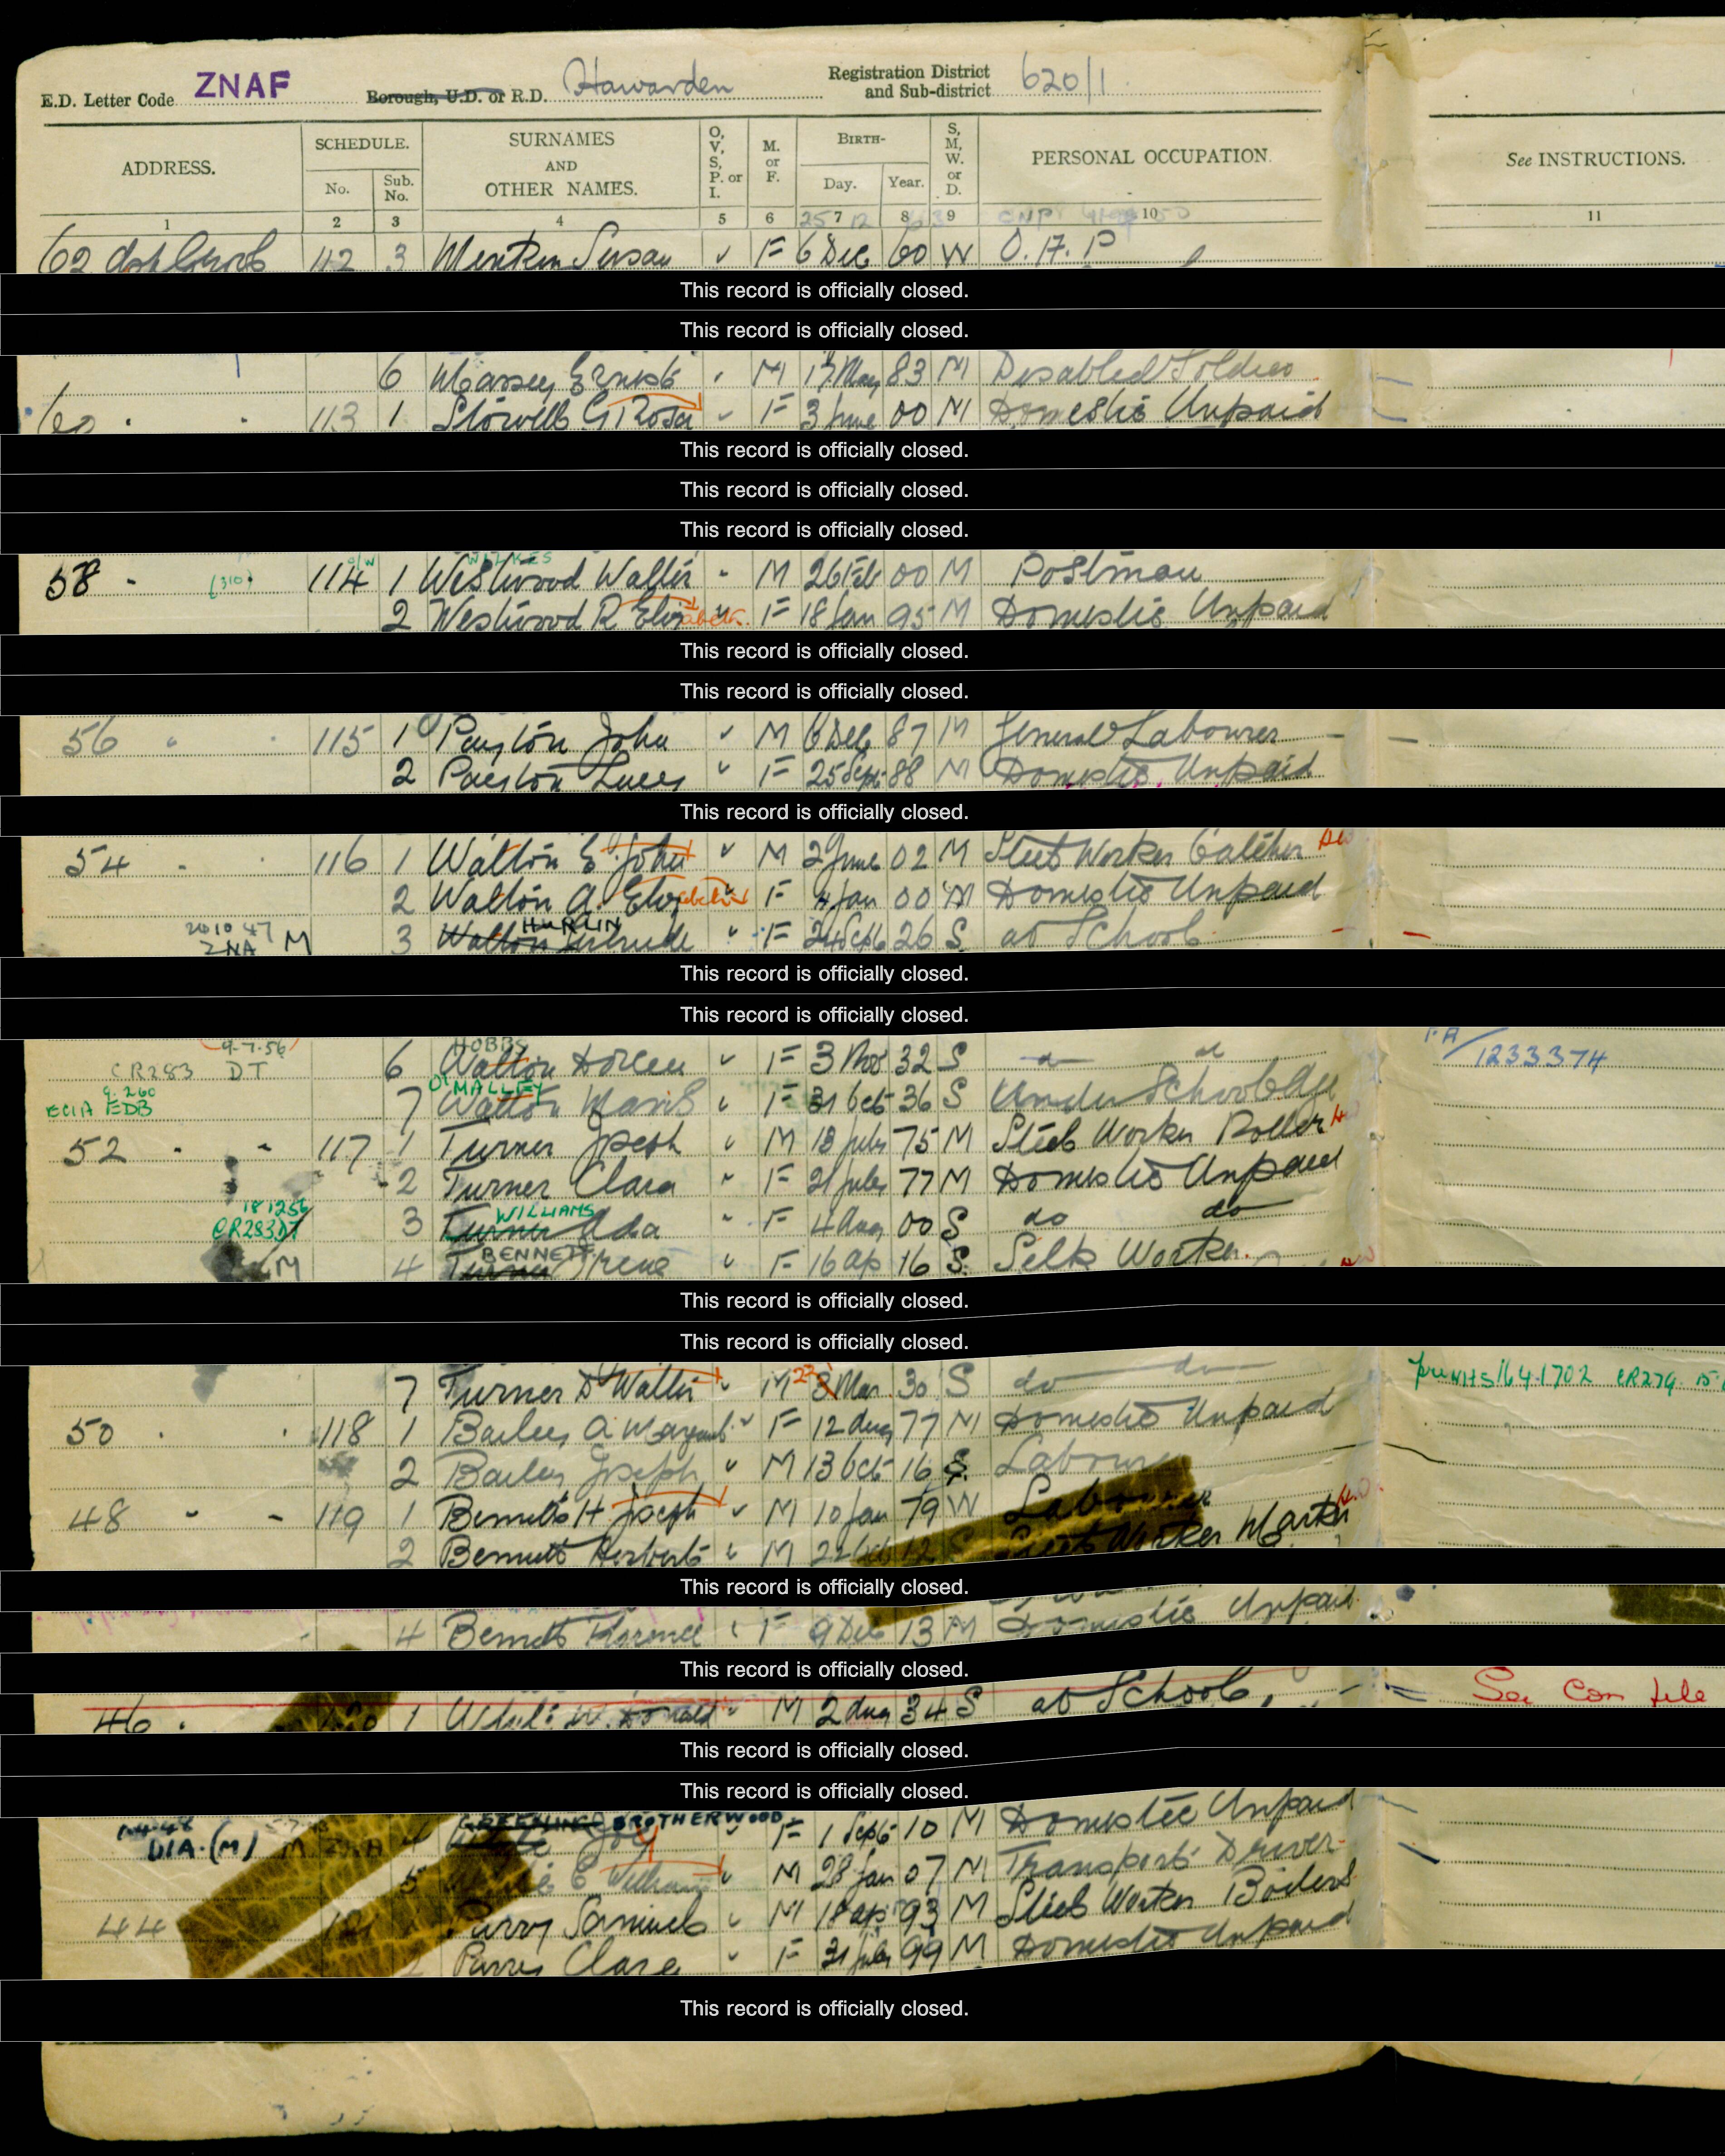 E.D. Letter Code ZNAF Borough, U.D. or R.D. Hawarden Registration District and Sub-district 620/1
ADDRESS. SCHEDULE. No. Sub. No. SURNAMES AND OTHER NAMES. O, V, S, P. or I. M. or F. BIRTH- Day. Year. S, M, W. or D. PERSONAL OCCUPATION. See INSTRUCTIONS.
1 2 3 4 5 6 7 8 9 10 11
62 112 3 Susan F 6 Dec 60 W O.A.P
This record is officially closed.
This record is officially closed.
6 Massey Ernest M 17 May 83 M Disabled Soldier
60 113 1 G Rosa F 3 June 00 M Domestic Unpaid
This record is officially closed.
This record is officially closed.
This record is officially closed.
WILKES
58 (310) 114 1 Westwood Walter M 26 Feb 00 M Postman
2 Westwood R Elizabeth F 18 Jan 95 M Domestic Unpaid
This record is officially closed.
This record is officially closed.
56 115 1 John M 6 Dec 87 M General Labourer
2 Lucy F 25 Sept 88 M Domestic Unpaid
This record is officially closed.
54 116 1 Walton E John M 2 June 02 M Steel Worker Catcher
2 Walton A. Elizabeth F 4 Jan 00 M Domestic Unpaid
20 10 47 ZNA M HURLIN
3 Walton Gertrude F 24 Sept 26 S at School
This record is officially closed.
This record is officially closed.
9-7-56 CR283 DT HOBBS
6 Walton Doreen F 3 Nov 32 S do do FA/1233374
9.260 ECIA EDB O'MALLEY
7 Walton Mavis F 31 Oct 36 S Under School Age
52 117 1 Turner Joseph M 18 July 75 M Steel Worker Roller
2 Turner Clara F 21 July 77 M Domestic Unpaid
181256 CR283DT WILLIAMS
3 Turner Ada F 4 Aug 00 S do do
M BENNETT
4 Turner Irene F 16 Ap 16 S Silk Worker
This record is officially closed.
This record is officially closed.
7 Turner D Walter M 23 Mar 30 S do do CR279
50 118 1 Bailey A Margaret F 12 Aug 77 M Domestic Unpaid
2 Bailey Joseph M 13 Oct 16 S Labourer
48 119 1 Bennett H Joseph M 10 Jan 79 W Labourer
2 Bennett Herbert M 22 Oct 12 S Sheet Worker
This record is officially closed.
4 Bennett Florence F 9 Dec 13 M Domestic Unpaid
This record is officially closed.
46 120 1 White W. Donald M 2 Aug 34 S at School See Con file
This record is officially closed.
This record is officially closed.
DIA.(M) M ZNA GREENING BROTHERWOOD
4 Joy F 1 Sept 10 M Domestic Unpaid
5 White E William M 28 Jan 07 M Transport Driver
44 121 1 Parry Samuel M 18 Ap 93 M Steel Worker
2 Parry Clara F 31 July 99 M Domestic Unpaid
This record is officially closed.